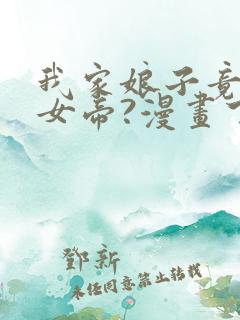 我家娘子竟
女帝?漫畫
鄧新
未经同意禁止转载